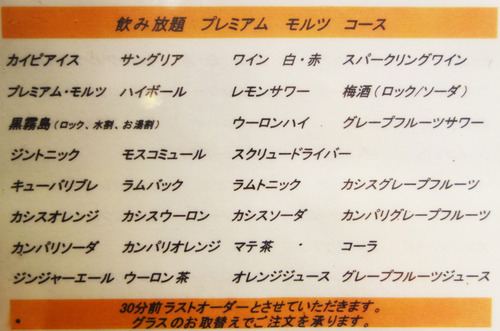 飲み放題 プレミアム モルツ コース
カイピアイス サングリア ワイン 白・赤 スパークリングワイン
プレミアム・モルツ ハイボール レモンサワー 梅酒(ロック/ソーダ)
黒霧島(ロック、水割、お湯割) ウーロンハイ グレープフルーツサワー
ジントニック モスコミュール スクリュードライバー
キューバリブレ ラムバック ラムトニック カシスグレープフルーツ
カシスオレンジ カシスウーロン カシスソーダ カンパリグレープフルーツ
カンパリソーダ カンパリオレンジ マテ茶 ・ コーラ
ジンジャーエール ウーロン茶 オレンジジュース グレープフルーツジュース
30分前ラストオーダーとさせていただきます。
グラスのお取替えでご注文を承ります。